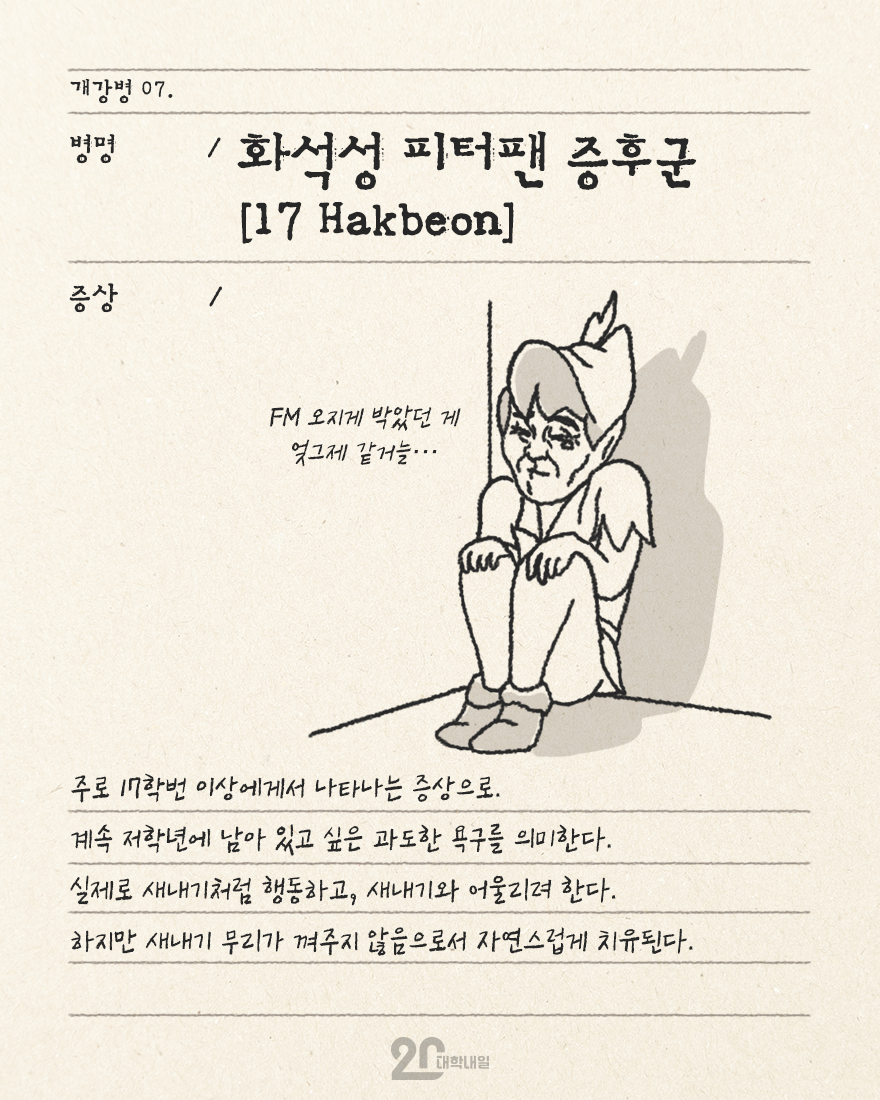 개강병 07.
병명 / 화석성 피터팬 증후군
[17 Hakbeon]
증상 /
FM 오지게 박았던 게
엊그제 같거늘...
주로 17학번 이상에게서 나타나는 증상으로.
계속 저학년에 남아 있고 싶은 과도한 욕구를 의미한다.
실제로 새내기처럼 행동하고, 새내기와 어울리려 한다.
하지만 새내기 무리가 껴주지 않음으로서 자연스럽게 치유된다.
20 대학내일